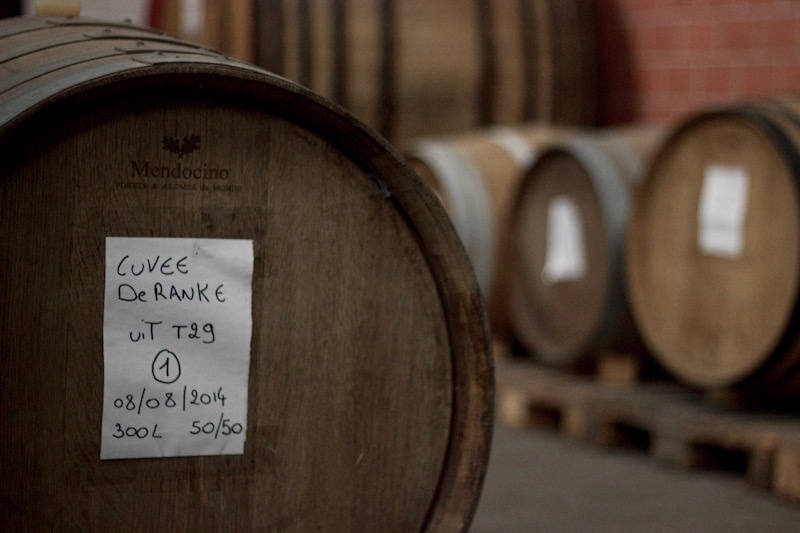 Mendocino
CUVEE
De RANKE
uiT T29
1
08/08/2014
300L 50/50